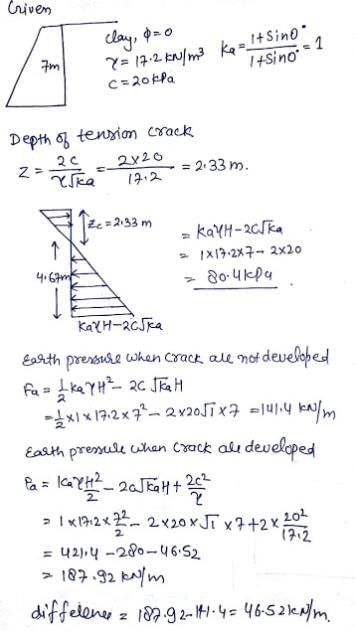 Given
7m
clay, φ=0
γ = 17.2 kN/m³
c = 20 kPa
Ka = (1+Sin0°)/(1+Sin0°) = 1
Depth of tension crack
Z = 2c/(γ√ka) = (2×20)/17.2 = 2.33 m.
Zc = 2.33 m
4.67m
KaγH-2C√Ka
= KaγH-2C√Ka
= 1×17.2×7 - 2×20
= 80.4 kPa
Earth pressure when crack are not developed
Fa = ½ kaγH² - 2C √Ka H
= ½×1×17.2×7² - 2×20√1×7 = 141.4 kN/m
Earth pressure when crack are developed
Pa = KaγH²/2 - 2C√Ka H + 2c²/γ
= 1×17.2×7²/2 - 2×20×√1×7+2×20²/17.2
= 421.4 - 280 - 46.52
= 187.92 kN/m
difference = 187.92-141.4 = 46.52 kN/m.